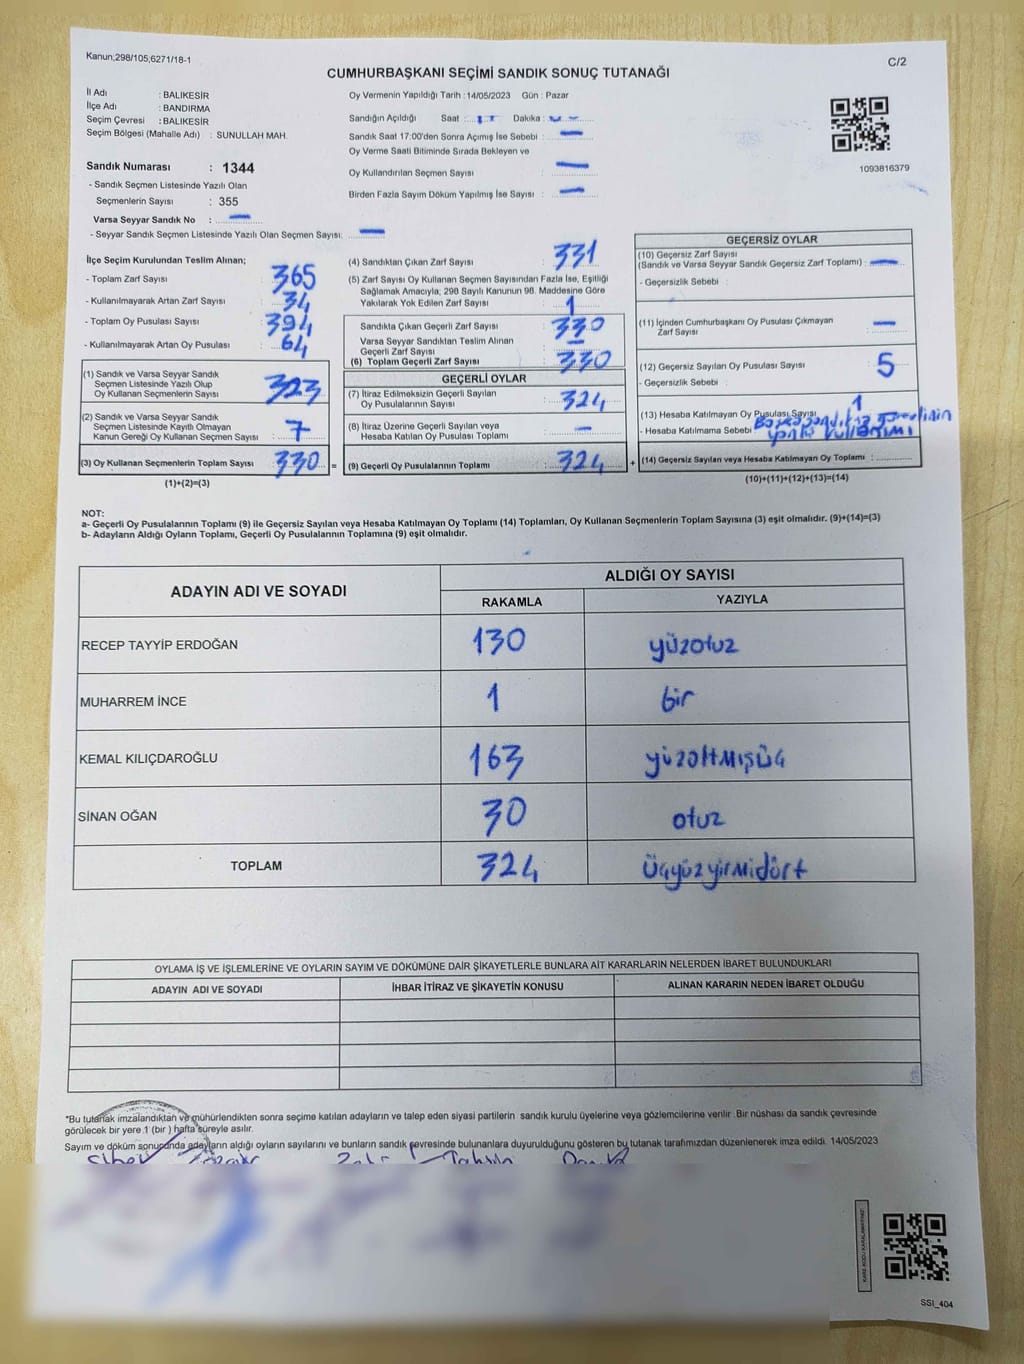 Kanun;298/105;6271/18-1
C/2
CUMHURBAŞKANI SEÇİMİ SANDIK SONUÇ TUTANAĞI
İl Adı : BALIKESİR
İlçe Adı : BANDIRMA
Seçim Çevresi : BALIKESİR
Seçim Bölgesi (Mahalle Adı) : SUNULLAH MAH.
Sandık Numarası : 1344
- Sandık Seçmen Listesinde Yazılı Olan
Seçmenlerin Sayısı : 355
Varsa Seyyar Sandık No : —
- Seyyar Sandık Seçmen Listesinde Yazılı Olan Seçmen Sayısı: —
Oy Vermenin Yapıldığı Tarih : 14/05/2023 Gün : Pazar
Sandığın Açıldığı Saat : 17 Dakika :
Sandık Saat 17:00'den Sonra Açımış İse Sebebi : —
Oy Verme Saati Bitiminde Sırada Bekleyen ve
Oy Kullandırılan Seçmen Sayısı : —
Birden Fazla Sayım Döküm Yapılmış İse Sayısı : —
1093816379
İlçe Seçim Kurulundan Teslim Alınan;
- Toplam Zarf Sayısı : 365
- Kullanılmayarak Artan Zarf Sayısı : 34
- Toplam Oy Pusulası Sayısı : 394
- Kullanılmayarak Artan Oy Pusulası : 64
(1) Sandık ve Varsa Seyyar Sandık
Seçmen Listesinde Yazılı Olup
Oy Kullanan Seçmenlerin Sayısı : 323
(2) Sandık ve Varsa Seyyar Sandık
Seçmen Listesinde Kayıtlı Olmayan
Kanun Gereği Oy Kullanan Seçmen Sayısı : 7
(3) Oy Kullanan Seçmenlerin Toplam Sayısı : 330
(1)+(2)=(3)
(4) Sandıktan Çıkan Zarf Sayısı : 331
(5) Zarf Sayısı Oy Kullanan Seçmen Sayısından Fazla İse, Eşitliği
Sağlamak Amacıyla, 298 Sayılı Kanunun 98. Maddesine Göre
Yakılarak Yok Edilen Zarf Sayısı : 1
Sandıkta Çıkan Geçerli Zarf Sayısı : 330
Varsa Seyyar Sandıktan Teslim Alınan
Geçerli Zarf Sayısı : —
(6) Toplam Geçerli Zarf Sayısı : 330
GEÇERLİ OYLAR
(7) İtiraz Edilmeksizin Geçerli Sayılan
Oy Pusulalarının Sayısı : 324
(8) İtiraz Üzerine Geçerli Sayılan veya
Hesaba Katılan Oy Pusulası Toplamı : —
= (9) Geçerli Oy Pusulalarının Toplamı : 324 +
GEÇERSİZ OYLAR
(10) Geçersiz Zarf Sayısı
(Sandık ve Varsa Seyyar Sandık Geçersiz Zarf Toplamı) : —
- Geçersizlik Sebebi :
(11) İçinden Cumhurbaşkanı Oy Pusulası Çıkmayan
Zarf Sayısı : —
(12) Geçersiz Sayılan Oy Pusulası Sayısı : 5
- Geçersizlik Sebebi :
(13) Hesaba Katılmayan Oy Pusulası Sayısı : 1
- Hesaba Katılmama Sebebi : görevlinin
(14) Geçersiz Sayılan veya Hesaba Katılmayan Oy Toplamı :
(10)+(11)+(12)+(13)=(14)
NOT:
a- Geçerli Oy Pusulalarının Toplamı (9) ile Geçersiz Sayılan veya Hesaba Katılmayan Oy Toplamı (14) Toplamları, Oy Kullanan Seçmenlerin Toplam Sayısına (3) eşit olmalıdır. (9)+(14)=(3)
b- Adayların Aldığı Oyların Toplamı, Geçerli Oy Pusulalarının Toplamına (9) eşit olmalıdır.
ADAYIN ADI VE SOYADI ALDIĞI OY SAYISI
RAKAMLA YAZIYLA
RECEP TAYYİP ERDOĞAN 130 yüzotuz
MUHARREM İNCE 1 bir
KEMAL KILIÇDAROĞLU 163 yüzaltmışüç
SİNAN OĞAN 30 otuz
TOPLAM 324 üçyüzyirmidört
OYLAMA İŞ VE İŞLEMLERİNE VE OYLARIN SAYIM VE DÖKÜMÜNE DAİR ŞİKAYETLERLE BUNLARA AİT KARARLARIN NELERDEN İBARET BULUNDUKLARI
ADAYIN ADI VE SOYADI İHBAR İTİRAZ VE ŞİKAYETİN KONUSU ALINAN KARARIN NEDEN İBARET OLDUĞU
*Bu tutanak imzalandıktan ve mühürlendikten sonra seçime katılan adayların ve talep eden siyasi partilerin sandık kurulu üyelerine veya gözlemcilerine verilir. Bir nüshası da sandık çevresinde
görülecek bir yere 1 (bir ) hafta süreyle asılır.
Sayım ve döküm sonucunda adayların aldığı oyların sayılarını ve bunların sandık çevresinde bulunanlara duyurulduğunu gösteren bu tutanak tarafımızdan düzenlenerek imza edildi. 14/05/2023
KARE KODU KARALAMAYINIZ
SSI_404